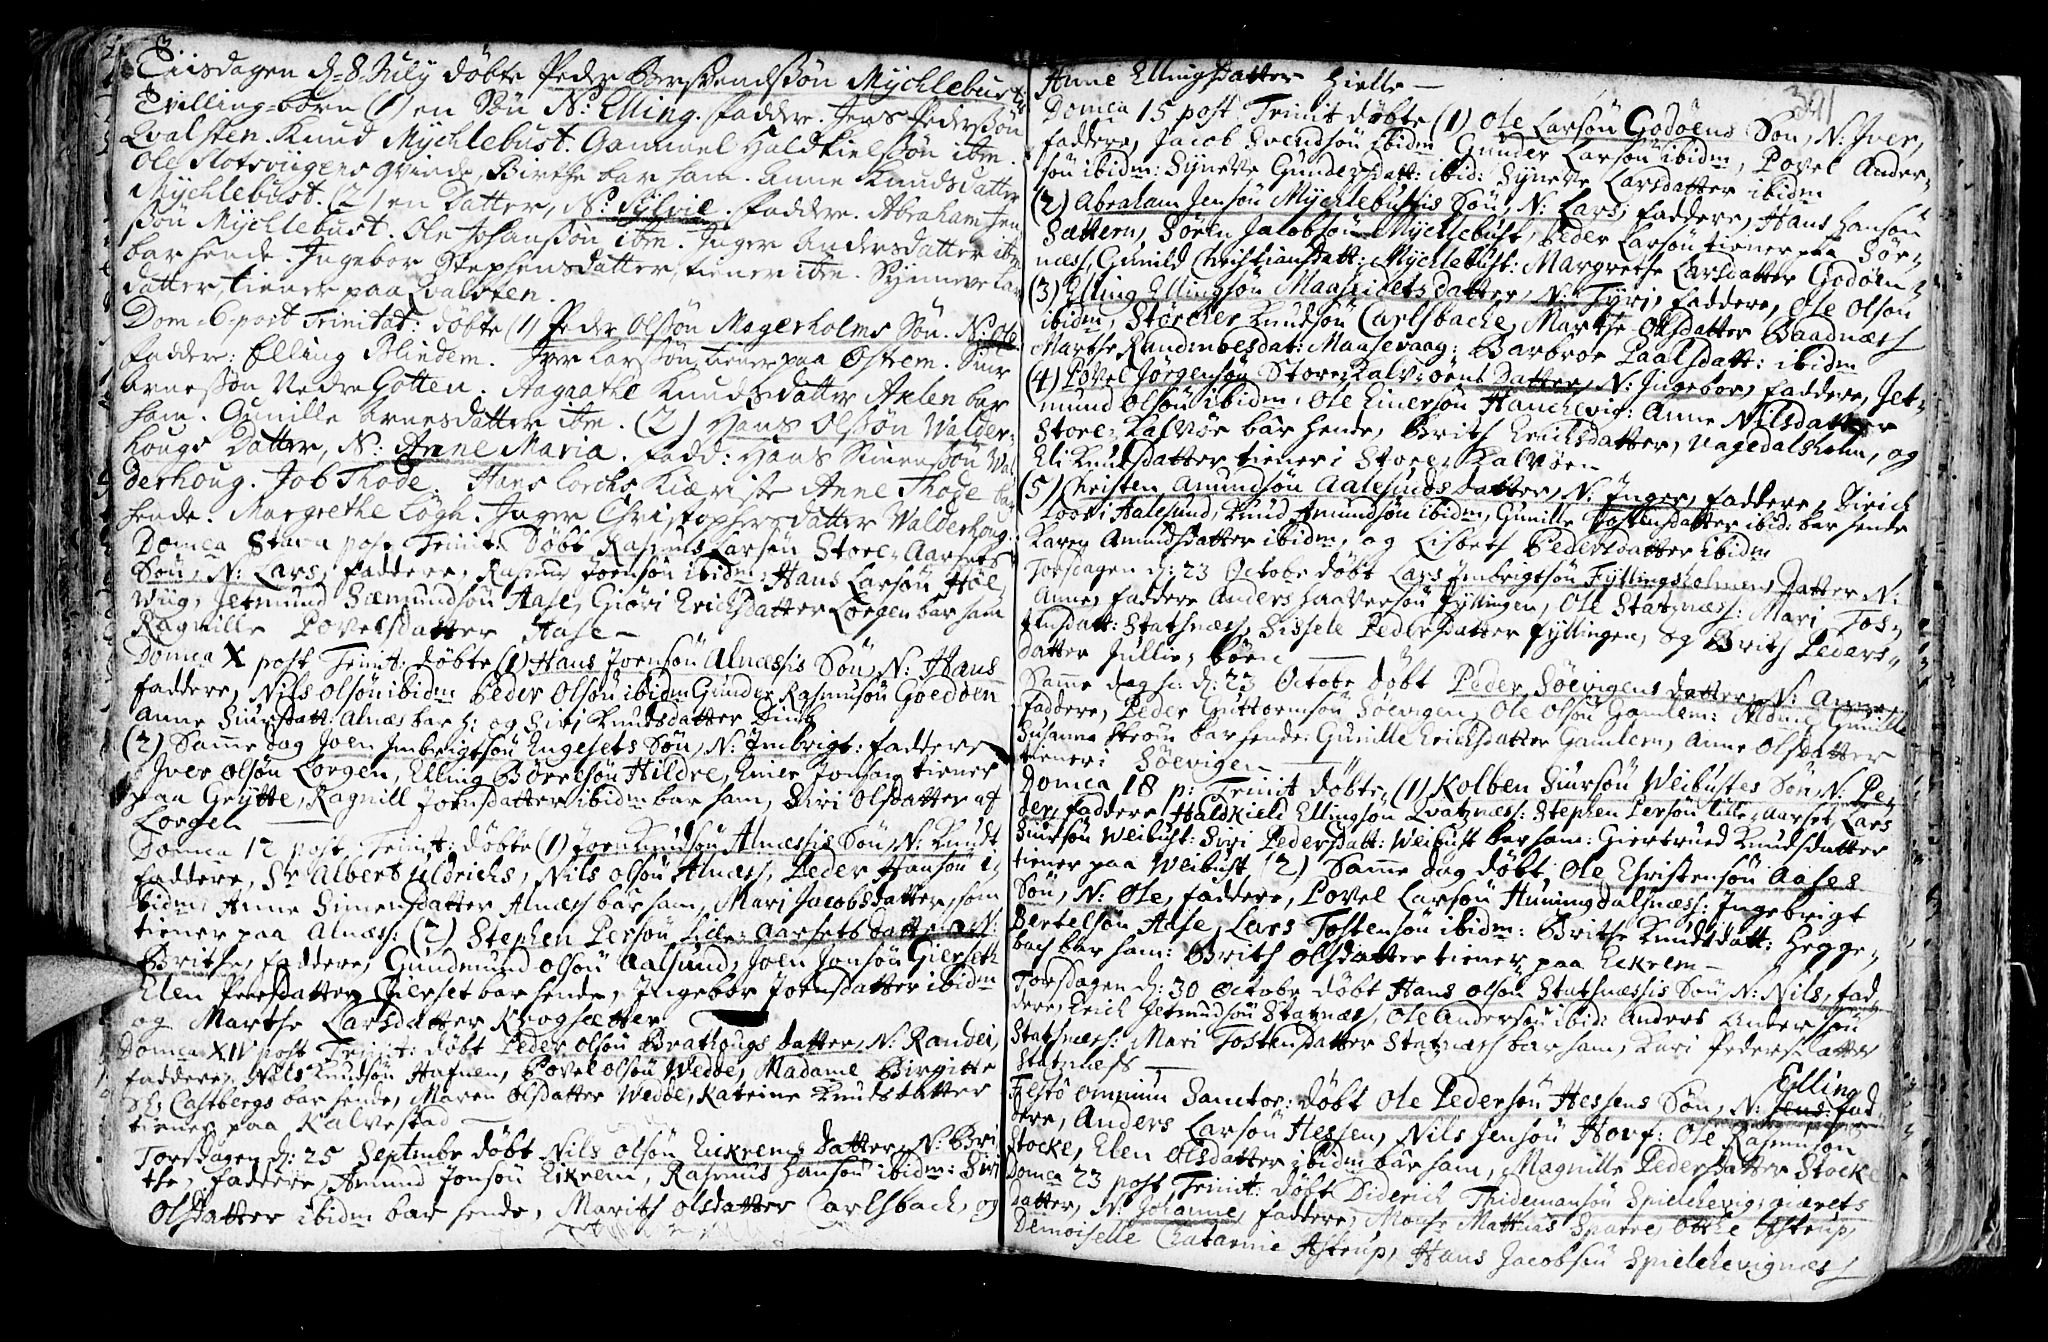 Tiisdagen d. 8 July döbte Peder Bersvendssön Mychlebust
Tvilling-börn (1) en Sön N: Elling. Faddere. Jens Pederssön
Qvalsten. Knud Mychlebust. Gammel Haldkielssön ibm.
Ole Slotsviigens qvinde, Birthe bar ham. Anne Knudsdatter
Mychlebust. (2) en Datter, N: Sylvie. Faddere. Abraham Jen
sön Mychlebust. Ole Johanssön ibm. Inger Andersdatter ibm
bar hende. Ingebor Stephensdatter, tiener ibm. Synneve La
datter, tiener paa Qvalsten.
Dom. 6 post Trinitat: döbte (1) Peder Olssön Magerholms Sön. N: Ole
Faddere: Elling Blindem. Iver Larssön, tiener paa Østrem. Siur
Arnessön Nedre Gotten. Aagaathe Knudsdatter Axlen bar
ham. Gunille Arnesdatter ibm. (2) Hans Olssön Walder-
hougs Datter, N: Anne Maria. Fadd: Hans Simenssön Wal
derhoug. Job Thode. Hans Lorchs Kiæriste Anne Thode bar
hende. Margrethe Logh. Inger Christophersdatter Walderhoug.
Domca 8tava post Trinit: Döbt Rasmus Larsön Store-Aarsets
Sön, N: Lars, faddere, Rasmus Jornsön ibidm, Hans Larsön Höe
wiig, Jetmund Sæmundsön Aase, Giöri Erichsdatter Lorgen bar ham
Ragnille Povelsdatter Aase —
Domca X post Trinit: döbte (1) Hans Jornsön Alnæssis Sön, N: Hans
faddere, Nils Olsön ibidm Peder Olsön ibidm Gunder Rasmusön Goedöen
Anne Siursdatt: Alnæs bar h: og Siri Knudsdatter
(2) Samme dag Joen Imbrigtsön Engesets Sön, N: Imbrigt: faddere
Iver Olsön Lorgen, Elling Börresön Hildre, Einer Jonsön tiener
paa Grytte, Ragnill Jornsdatter ibidm bar ham, Siri Olsdatter af
Lorgen —
Domca 12 post Trinit: döbte (1) Jorn Knudsön Alnæssis Sön, N: Knudt
faddere, Sr Albert Uldrichs, Nils Olsön Alnæss, Peder Hansön i-
bidm Anne Simensdatter Alnæss bar ham, Mari Jacobsdatter, som
tiener paa Alnæss: (2) Stephen Persön Lille-Aarsets datter N:
Brithe, faddere, Gundmund Olsön Aalsund, Joen Jonsön Gierseth
Elen Peersdatter Gierset bar hende, Ingebor Jornsdatter ibidm
og Marthe Larsdatter Krogsætter
Domca XIV post Trinit: döbt Peder Olsön Brathougs datter, N: Randei,
faddere, Nils Knudsön Hafnen, Povel Olsön Wedde, Madame Birgitte
Sl: Castbergs bar hende, Maren Olsdatter Wedde, Katrine Knudsdatter
tiener paa Kalvestad —
Torsdagen d: 25 Septmbr döbt Nils Olsön Eikrems datter, N: Bri
the, faddere, Amund Jonsön Eikrem, Rasmus Hansön ibidm: Siri
Olsdatter ibidm bar hende, Marith Olsdatter Carlsbach, og
Anne Ellingsdatter Hielle —
321
Domca 15 post Trinit döbte (1) Ole Larsön Godöens Sön, N: Iver,
faddere, Jacob Svendsön ibidm Gunder Larsön ibidm, Povel Ander-
sön ibidm: Synette Gundersdatt: ibid: Synette Larsdatter ibidm
(2) Abraham Jensön Mychlebustis Sön, N: Lars, faddere, Hans Hansön
Sættern, Sören Jacobsön Mychlebust, Peder Larsön tiener paa Sör-
næss, Gunild Christiansdatt: Mychlebust: Margrethe Larsdatter Godöen
(3) Elling Ellingsön Maaseidets datter, N: Tyri, faddere, Ole Olsön
ibidm, Störcher Knudsön Carlsbache, Marthe Olsdatter Baadnæss
Marthe Randmoesdat: Maasevaag: Barbroe Paalsdatt: ibidm
(4) Povel Jörgensön Store-Kalvöens Datter, N: Ingebor, faddere, Jet-
mund Olsön ibidm. Ole Einersön Hanchevig: Anne Nilsdatter
Store-Kalvöe bar hende, Brith Erichsdatter, Uagedalsholm, og
Eli Knudsdatter tiener i Store-Kalvöen
(5) Christen Amundsön Aalesunds datter, N: Inger, faddere, Dirich
Loos i Aalesund, Knud Amundsön ibidm, Gunille Tostensdatter ibid: bar hende
Karen Amundsdatter ibidm, og Lisbeth Pedersdatter ibidm
Torsdagen d: 23 Octobr döbt Lars Imbrigtsön Fyllingsholmens datter N:
Anne, faddere Anders Haaversön Fyllingen, Ole Statznæss: Mari Tos-
tensdatt: Statsnæss, Sissele Pedersdatter Fyllingen, og Brith Peders-
datter Jullie-böen —
Samme dag sc: d: 23 Octobr döbt Peder Söevigens datter, N: Anne
faddere, Peder Guttormsön Söevigen, Ole Olsön Gamlem: Gunille
Susanna Ström bar hende: Gunille Erichsdatter Gamlem, Anne Olsdatter
tiener i Söevigen —
Domca 18 p: Trinit döbte (1) Kolben Siursön Weibustes Sön, N: Pe-
der, faddere Haldkield Ellingsön Qvatznæss: Stephen Persön Lille-Aarset, Lars
Siursön Weibust: Siri Pedersdatt: Weibust bar ham: Giertrued Knudsdatter
tiener paa Weibust (2) Samme dag döbt Ole Christensön Aases
Sön, N: Ole, faddere, Povel Larsön Huningdalsnæss: Ingebrigt
Bertelsön Aase, Lars Tostensön ibidm: Brithe Knudsdatt: Hegge-
bach bar ham: Brith Olsdatter tiener paa Eikrem —
Torsdagen d: 30 Octobr döbt Hans Olsön Statsnæssis Sön N: Nils, fad-
dere, Erich Jetmundsön Statznæss, Ole Andersön ibid: Anders Andersön
Statsnæss: Mari Tostensdatter Statznæss bar ham, Kari Pedersdatter
Statznæss —
Elling
Festo omnium Sanctor: döbt Ole Pedersön Hessens Sön, N: Jens: fad-
dere, Anders Larsön Hessen, Nils Jensön Horf: Ole Rasmusön
Stocke, Elen Olsdatter ibidm bar ham, Magnille Pedersdatter Stocke
Domca 23 post Trinit: döbt Diderich Thidemansön Spielchevignærets
datter, N: Johanne, faddere, Monsr Matthias Sparre, Otthe Astrup,
Demoiselle Chatarine Astrup, Hans Jacobsön Spielchevignæss